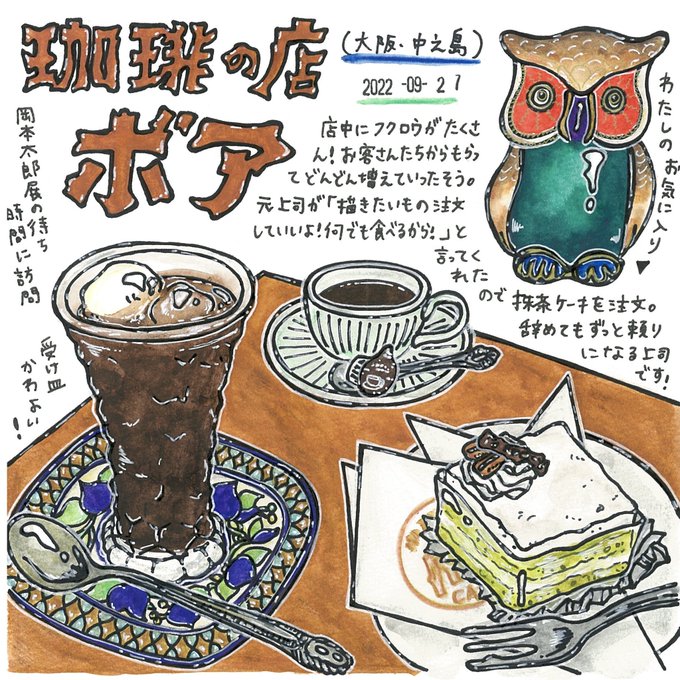 珈琲の店
ボア
(大阪・中之島)
2022 -09- 27
岡本太郎展の待ち
時間に訪問
店中にフクロウがたくさ
ん!お客さんたちからもらっ
てどんどん増えていったそう。
元上司が「描きたいもの注文
していいよ!何でも食べるから!」と
言ってくれた
ので
抹茶ケーキを注文。
辞めてもずっと頼り
になる上司
です!
わたしのお気に入り
受け皿
かわよい!